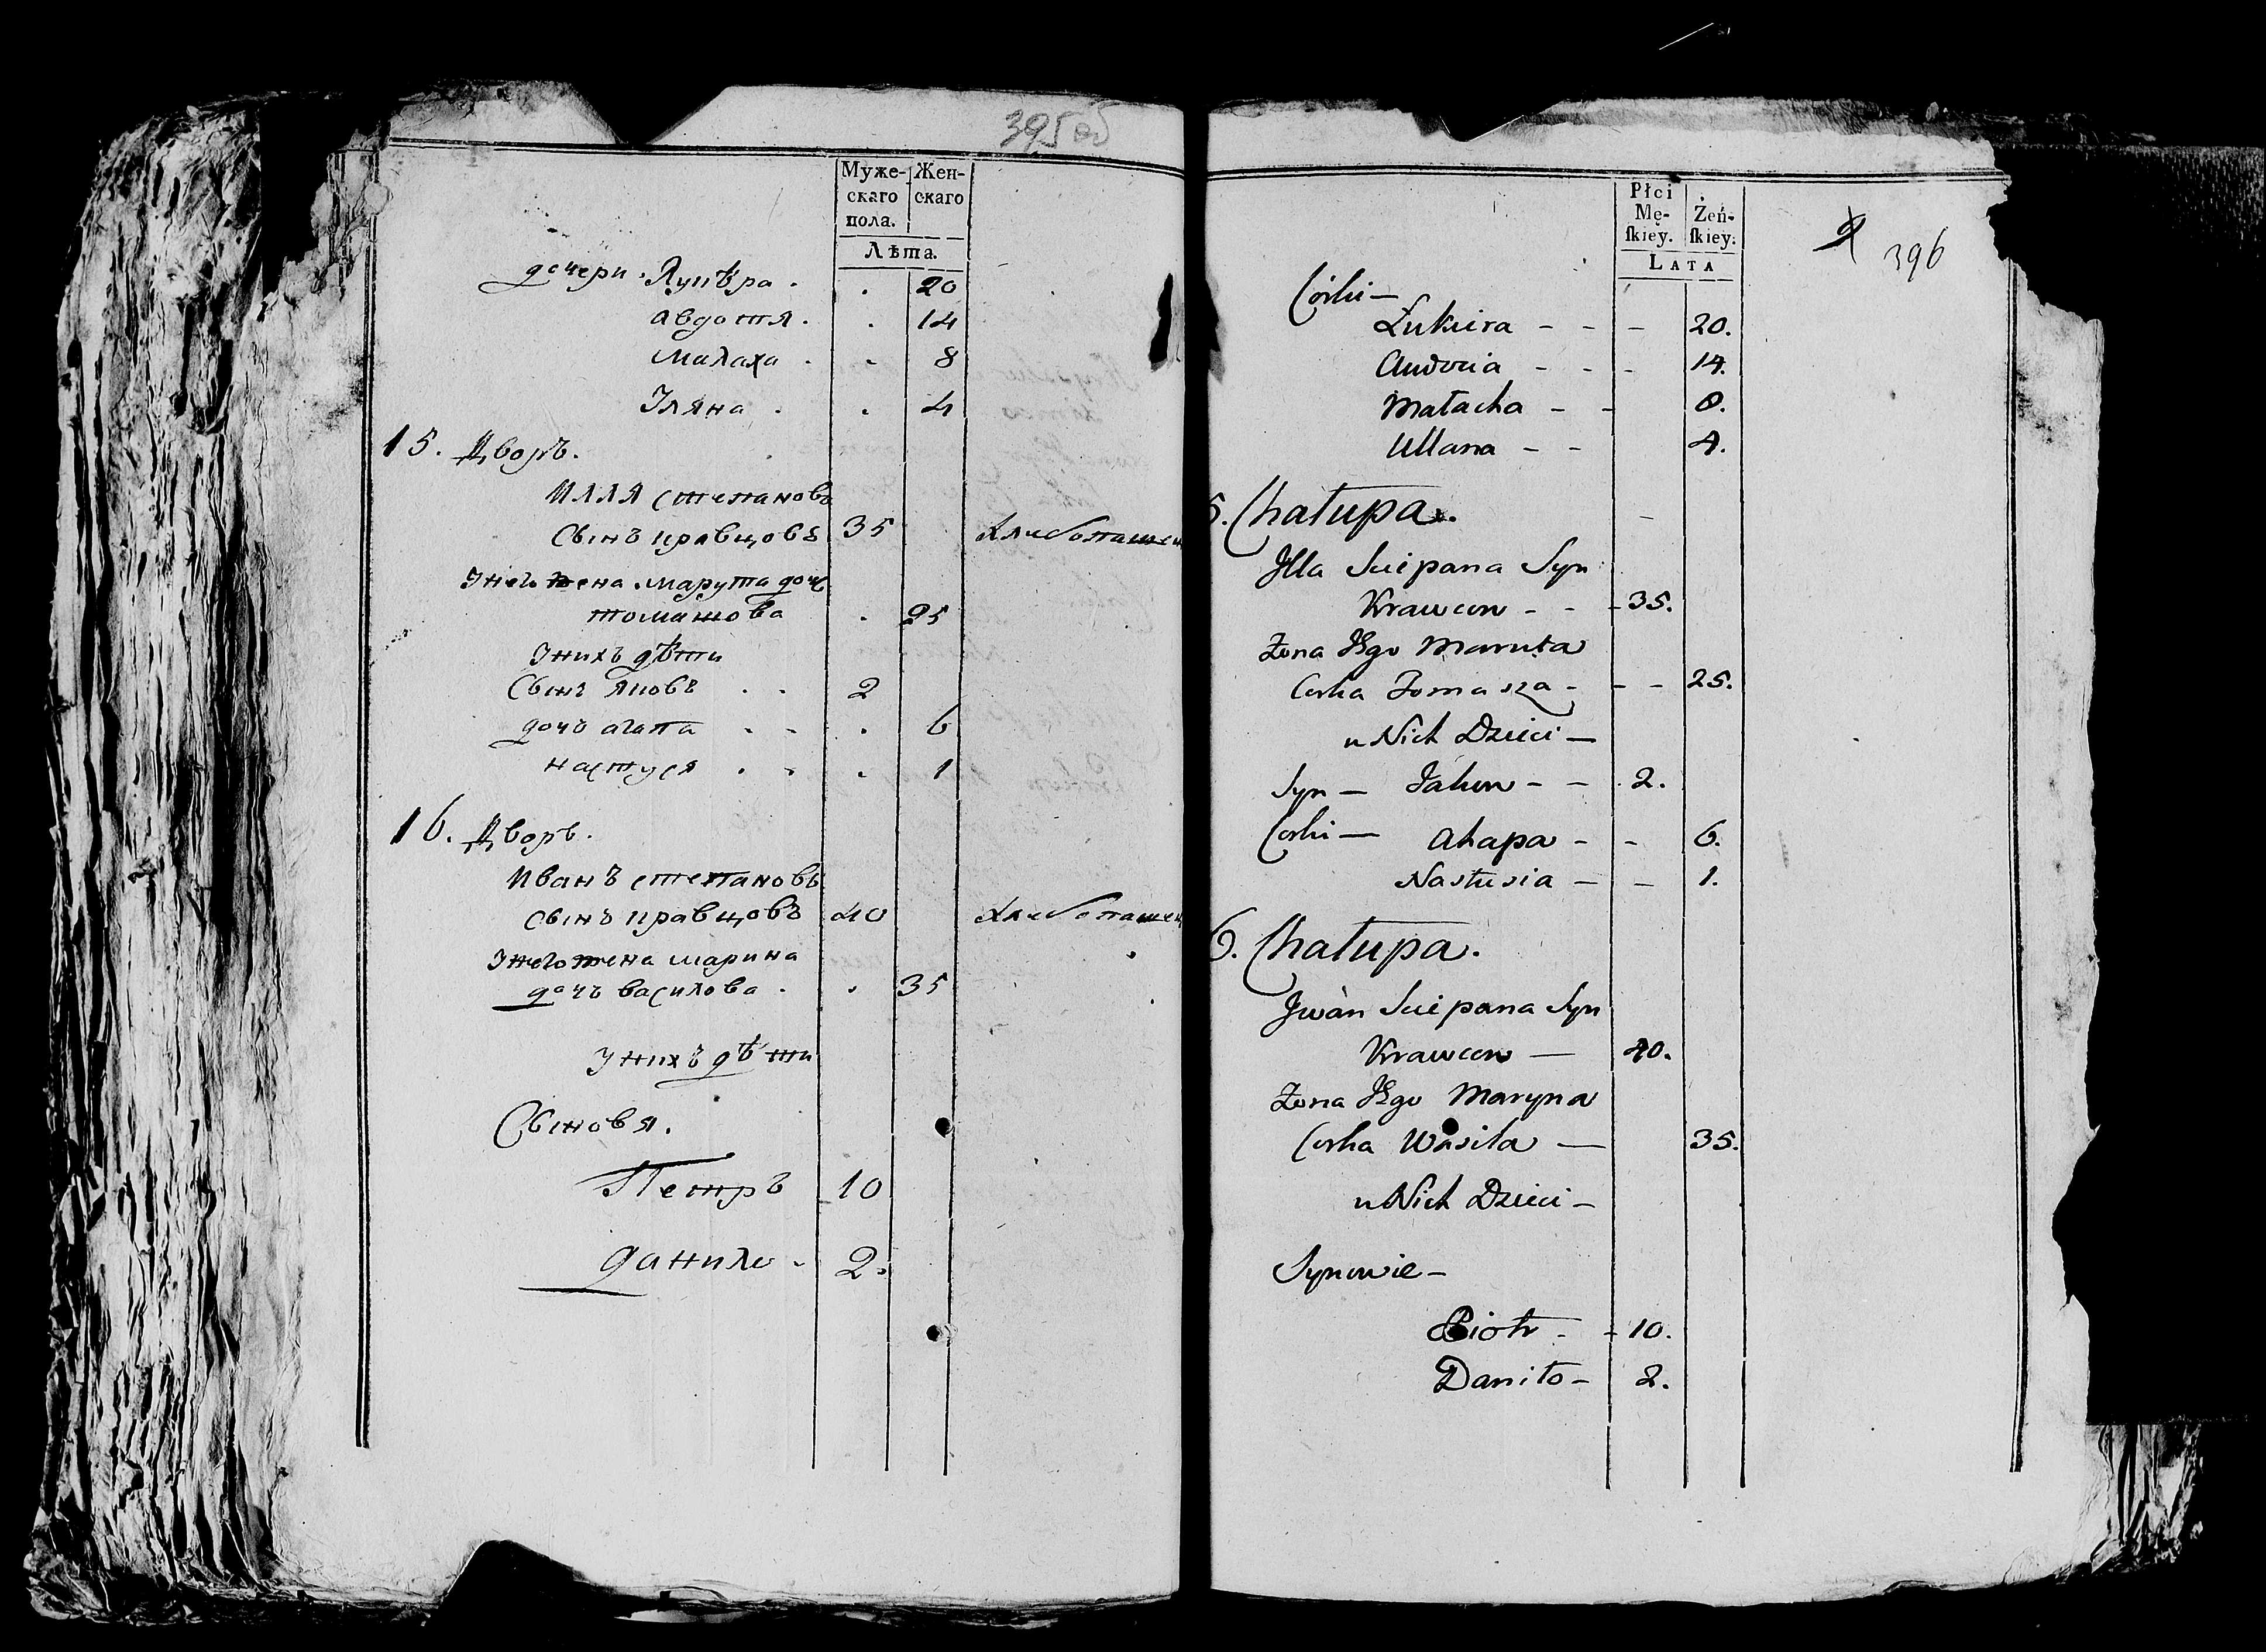 395 об
Муже-
скаго
пола.
Жен-
скаго
Лѣта.
дочери. Лукѣра . . 20
авдотя . . 14
малаха . . 8
Уляна . . 4
15. Дворъ.
Илля степановъ
сынъ кравцовъ 35
У него жена марута доч
томашова . 25
У нихъ дѣти
Сынъ яковъ . . 2
дочъ агапа . . . 6
настуся . . . 1
16. Дворъ.
Иванъ степановъ
сынъ кравцовъ 40
У него жена марина
дочъ василова . . 35
У нихъ дѣти
Сыновя.
Петръ 10
данило . 2.
396
Płci
Mę-
ſkiey.
Żeń-
ſkiey.
LATA
Córki —
Łukiera - - - 20.
Audocia - - - 14.
Małacha - - 8.
Ullana - - 4.
5. Chałupa.
Illa Sciepana Syn
Krawcow - - - 35.
Żona Jego Maruta
Corka Tomasza - - - 25.
u Nich Dzieci —
Syn — Jakow - - 2.
Corki — Ahapa - - 6.
Nastusia — - 1.
6. Chałupa.
Jwan Sciepana Syn
Krawcow — 40.
Żona Jego Maryna
Corka Wasila — 35.
u Nich Dzieci —
Synowie —
Piotr - - 10.
Daniło - 2.